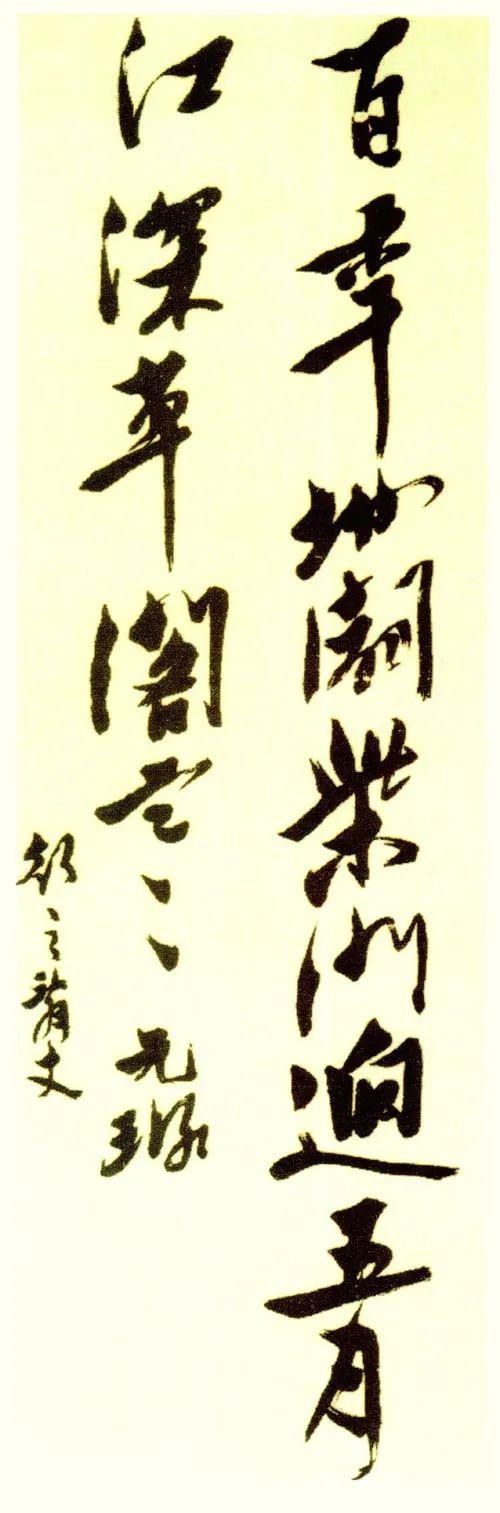 百年地闢柴門逈五月
江深草閣寒 元璐
之丈